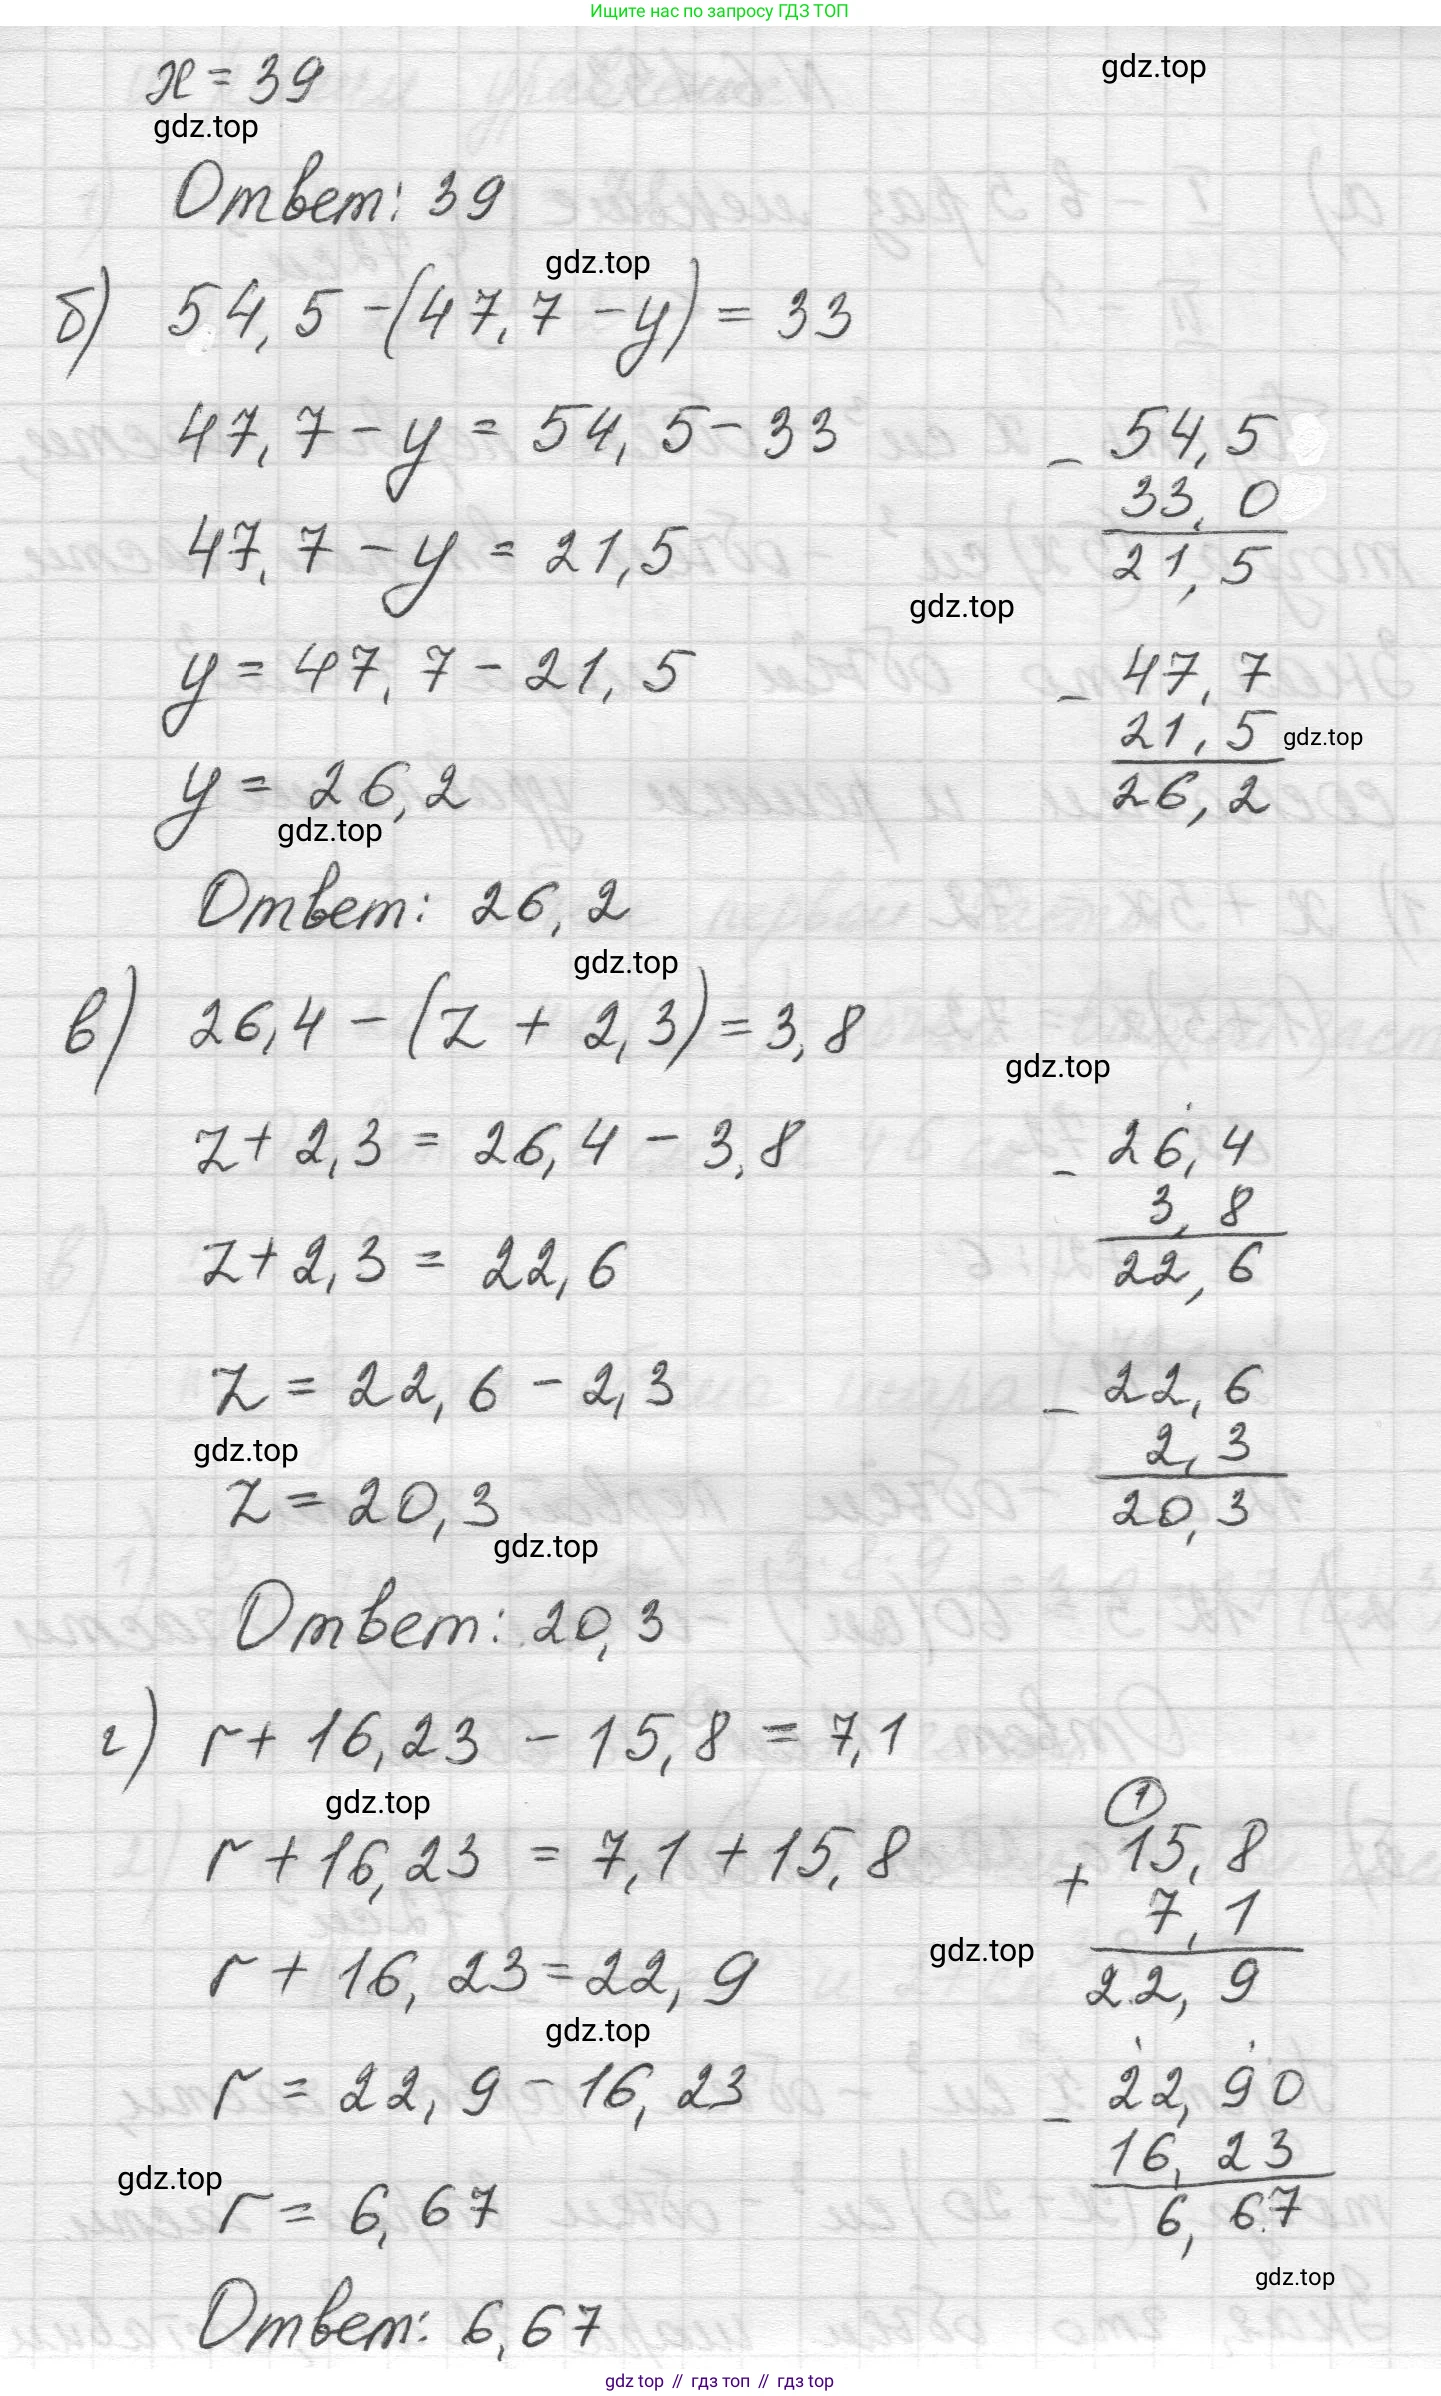 Ищите нас по запросу ГДЗ ТОП
x = 39
gdz.top
gdz.top
Ответ: 39
gdz.top
б) 54,5 - (47,7 - y) = 33
47,7 - y = 54,5 - 33
- 54,5
33,0
21,5
47,7 - y = 21,5
gdz.top
y = 47,7 - 21,5
- 47,7
21,5
26,2
gdz.top
y = 26,2
gdz.top
Ответ: 26,2
gdz.top
в) 26,4 - (z + 2,3) = 3,8
gdz.top
z + 2,3 = 26,4 - 3,8
- 26,4
3,8
22,6
z + 2,3 = 22,6
z = 22,6 - 2,3
- 22,6
2,3
20,3
gdz.top
z = 20,3
gdz.top
Ответ: 20,3
г) r + 16,23 - 15,8 = 7,1
gdz.top
r + 16,23 = 7,1 + 15,8
1
+ 15,8
7,1
22,9
gdz.top
r + 16,23 = 22,9
gdz.top
r = 22,9 - 16,23
- 22,90
16,23
6,67
gdz.top
r = 6,67
gdz.top
Ответ: 6,67
gdz top // гдз топ // гдз top